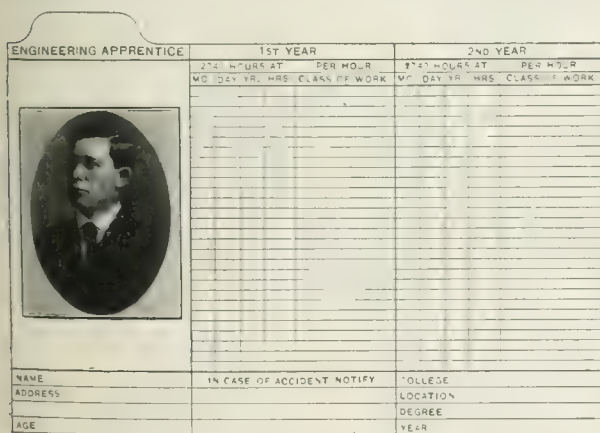 ENGINEERING APPRENTICE
1ST YEAR
2ND YEAR
HOURS AT PER HOUR
HOURS AT PER HOUR
MO. DAY YR. HRS CLASS OF WORK
MO. DAY YR. HRS CLASS OF WORK
NAME
IN CASE OF ACCIDENT NOTIFY
COLLEGE
ADDRESS
LOCATION
DEGREE
AGE
YEAR